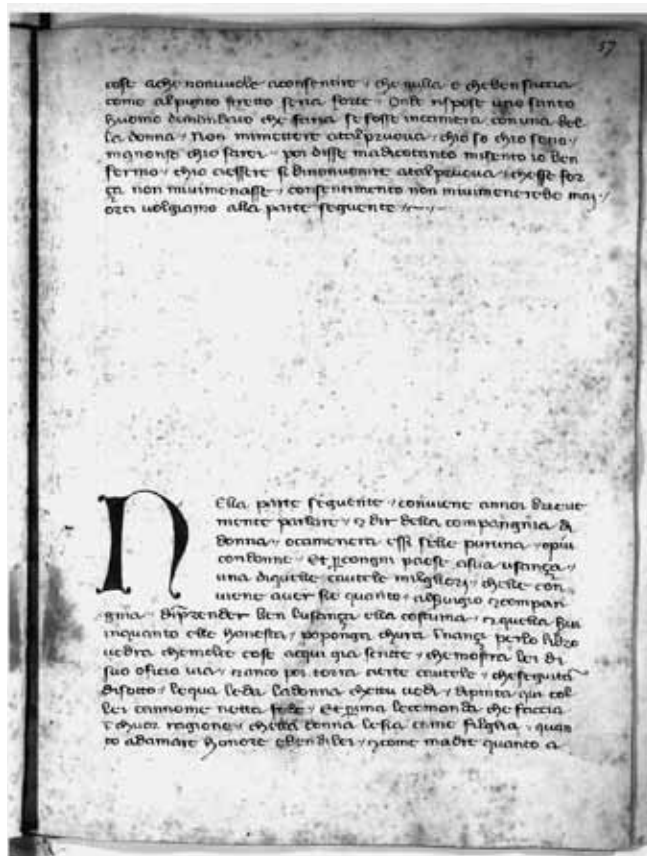 57
cose ache nonvuole aconsentire / che nulla e cheben faccia
como al punto stretto seria forte / Onde rispose uno santo
huomo dimandato che faria se fosse incamera con una bel
la donna / Non mimettere atal pruova / chio so chio sono /
ma non so chio farei / poi disse madicotanto misento io ben
fermo / chio aessere si dinonvenire atal pruova / chesse for
ça non mivimenasse / consentimento non mivimenerebe mai /
orci volgiamo alla parte sequente
Nella parte sequente / conviene annoi brieve
mente parlare / 7 dir della compangnia di
donna / ocamenera essi stesse pur una / opiu
con donne / Et pcongni paese asua usança /
una diquelle cautele milgliori / chelle con
viene aver sie quanto / alsuigio 7 compan
gnia / diprender ben lusança ella costuma / 7 quella
inquanto elle honesta / poponga chura perlo libro
vedra chemolte cose acqui gia scritte / chemostra lei di
suo oficio via / 7 anco poi torra certe cautele / cheseguita
disotto / lequa leda ladonna chettu vedi / dipinta qui col
lei cannome netta fede / Et pima lecomanda che faccia
ragione / chella donna lesia come filglia / quan
to adamare honore 7 ben di lei / 7 come madre quanto a